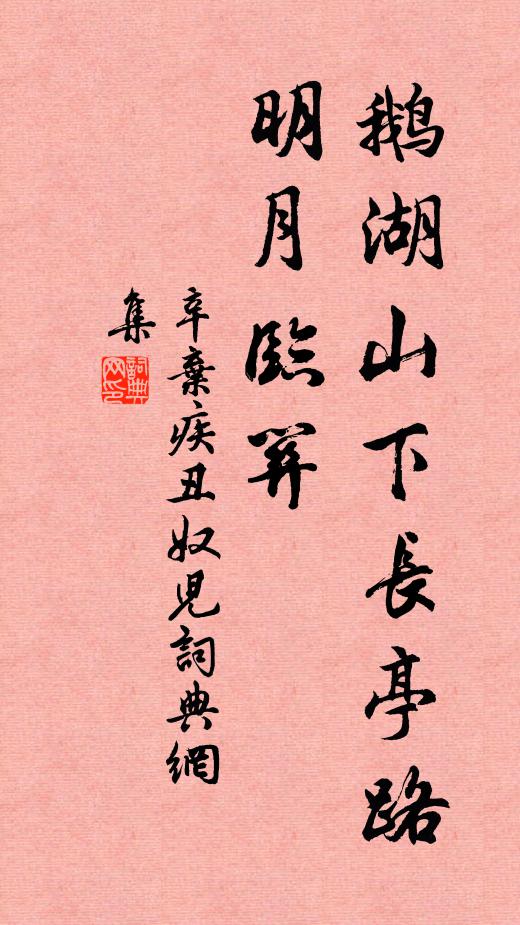 鵝湖山下長亭路
明月臨關
辛棄疾丑奴兒詞典網
集
詞典
网印